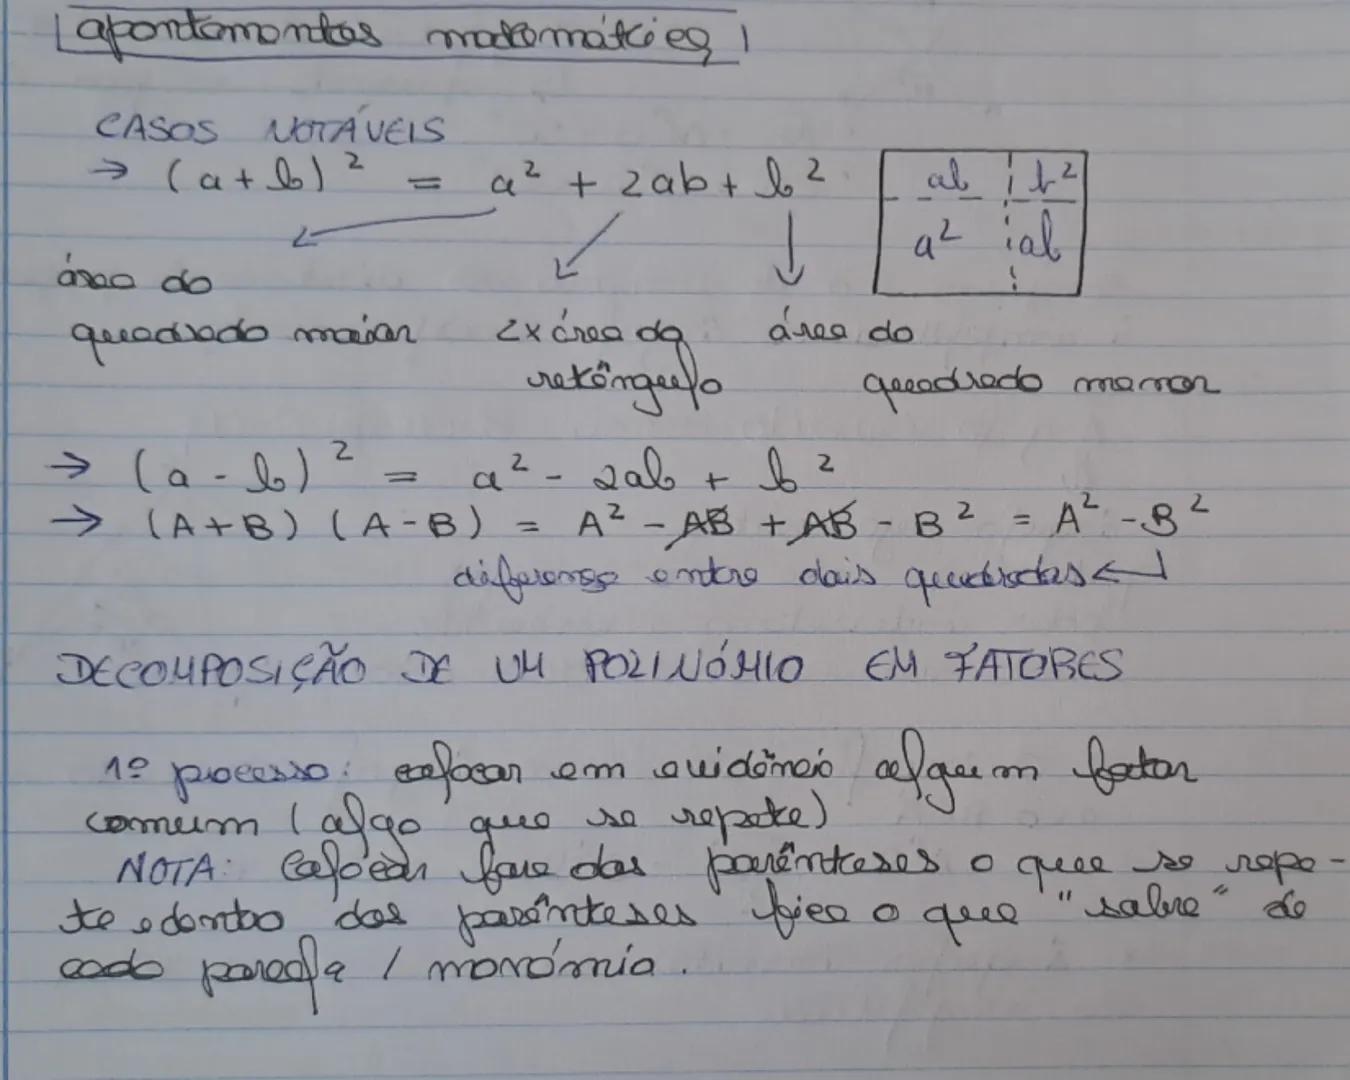 apontamentos matemática
CASOS NOTÁVEIS
→ (a+b)² = a² + 2ab + b²
ab b²
a² ab
área do
quadrado maior 2x área do área do
retângulo quadrado menor
→ (a - b)² = a² - 2ab + b²
→ (A+B) (A-B) = A² - AB + AB - B² = A² - B²
diferença entre dois quadrados
DECOMPOSIÇÃO DE UM POLINÓMIO EM FATORES
1º processo: colocar em evidência algum fator
comum (algo que se repete)
NOTA: Colocar fora dos parênteses o que se repe-
te e dentro dos parênteses fica o que "sobra" de
cada parcela / monómio.